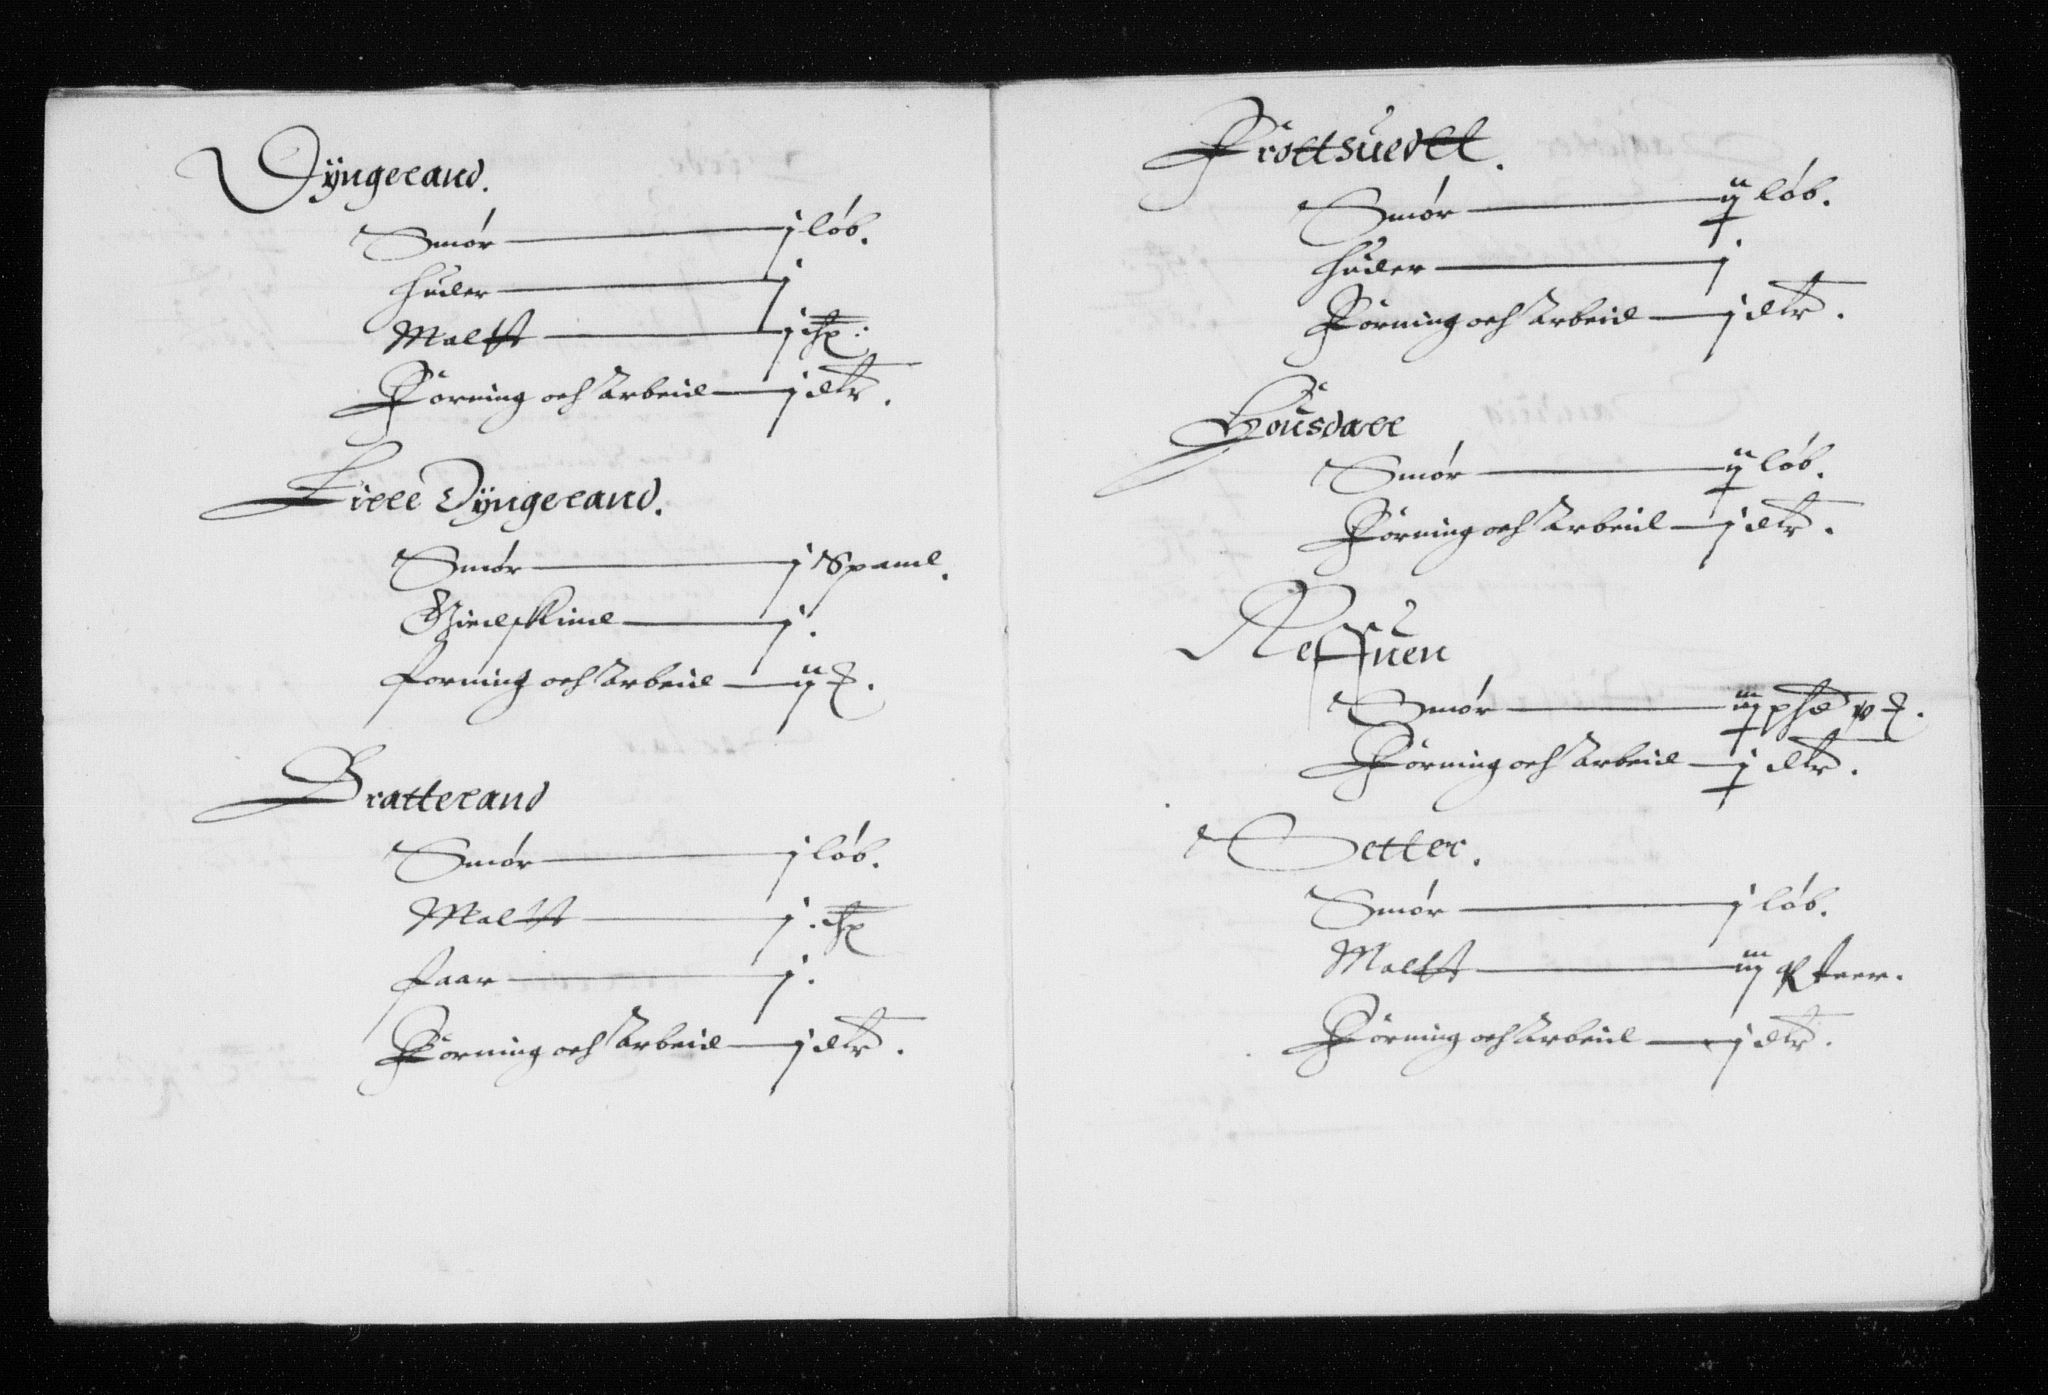 Dÿngeland.
Smór — j lób.
Huder — j
Maltt — j shp:
Fórning och Arbeid — j dlr.
Lille Dÿngeland.
Smór — j Spand.
Giedskind — j.
forning och Arbeid — ij
Brattland
Smór — j lób.
Maltt — j: shp
faar — j.
Fórning och Arbeid — j dlr.
Smór — ij lób.
Huder — j
Fórning och Arbeid — j dlr.
Housdall
Smór — ij lób.
Fórning och Arbeid — j dlr.
Nessuen
Smór — iij
Fórning och Arbeid — j dlr.
Setter.
Smór — j lób.
Maltt — iij
Fórning och Arbeid — j dlr.